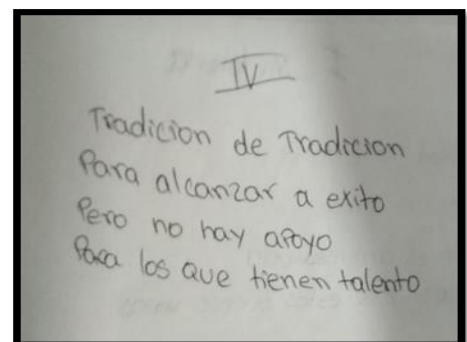 IV
Tradicion de Tradicion
Para alcanzar a exito
Pero no hay apoyo
Para los que tienen talento